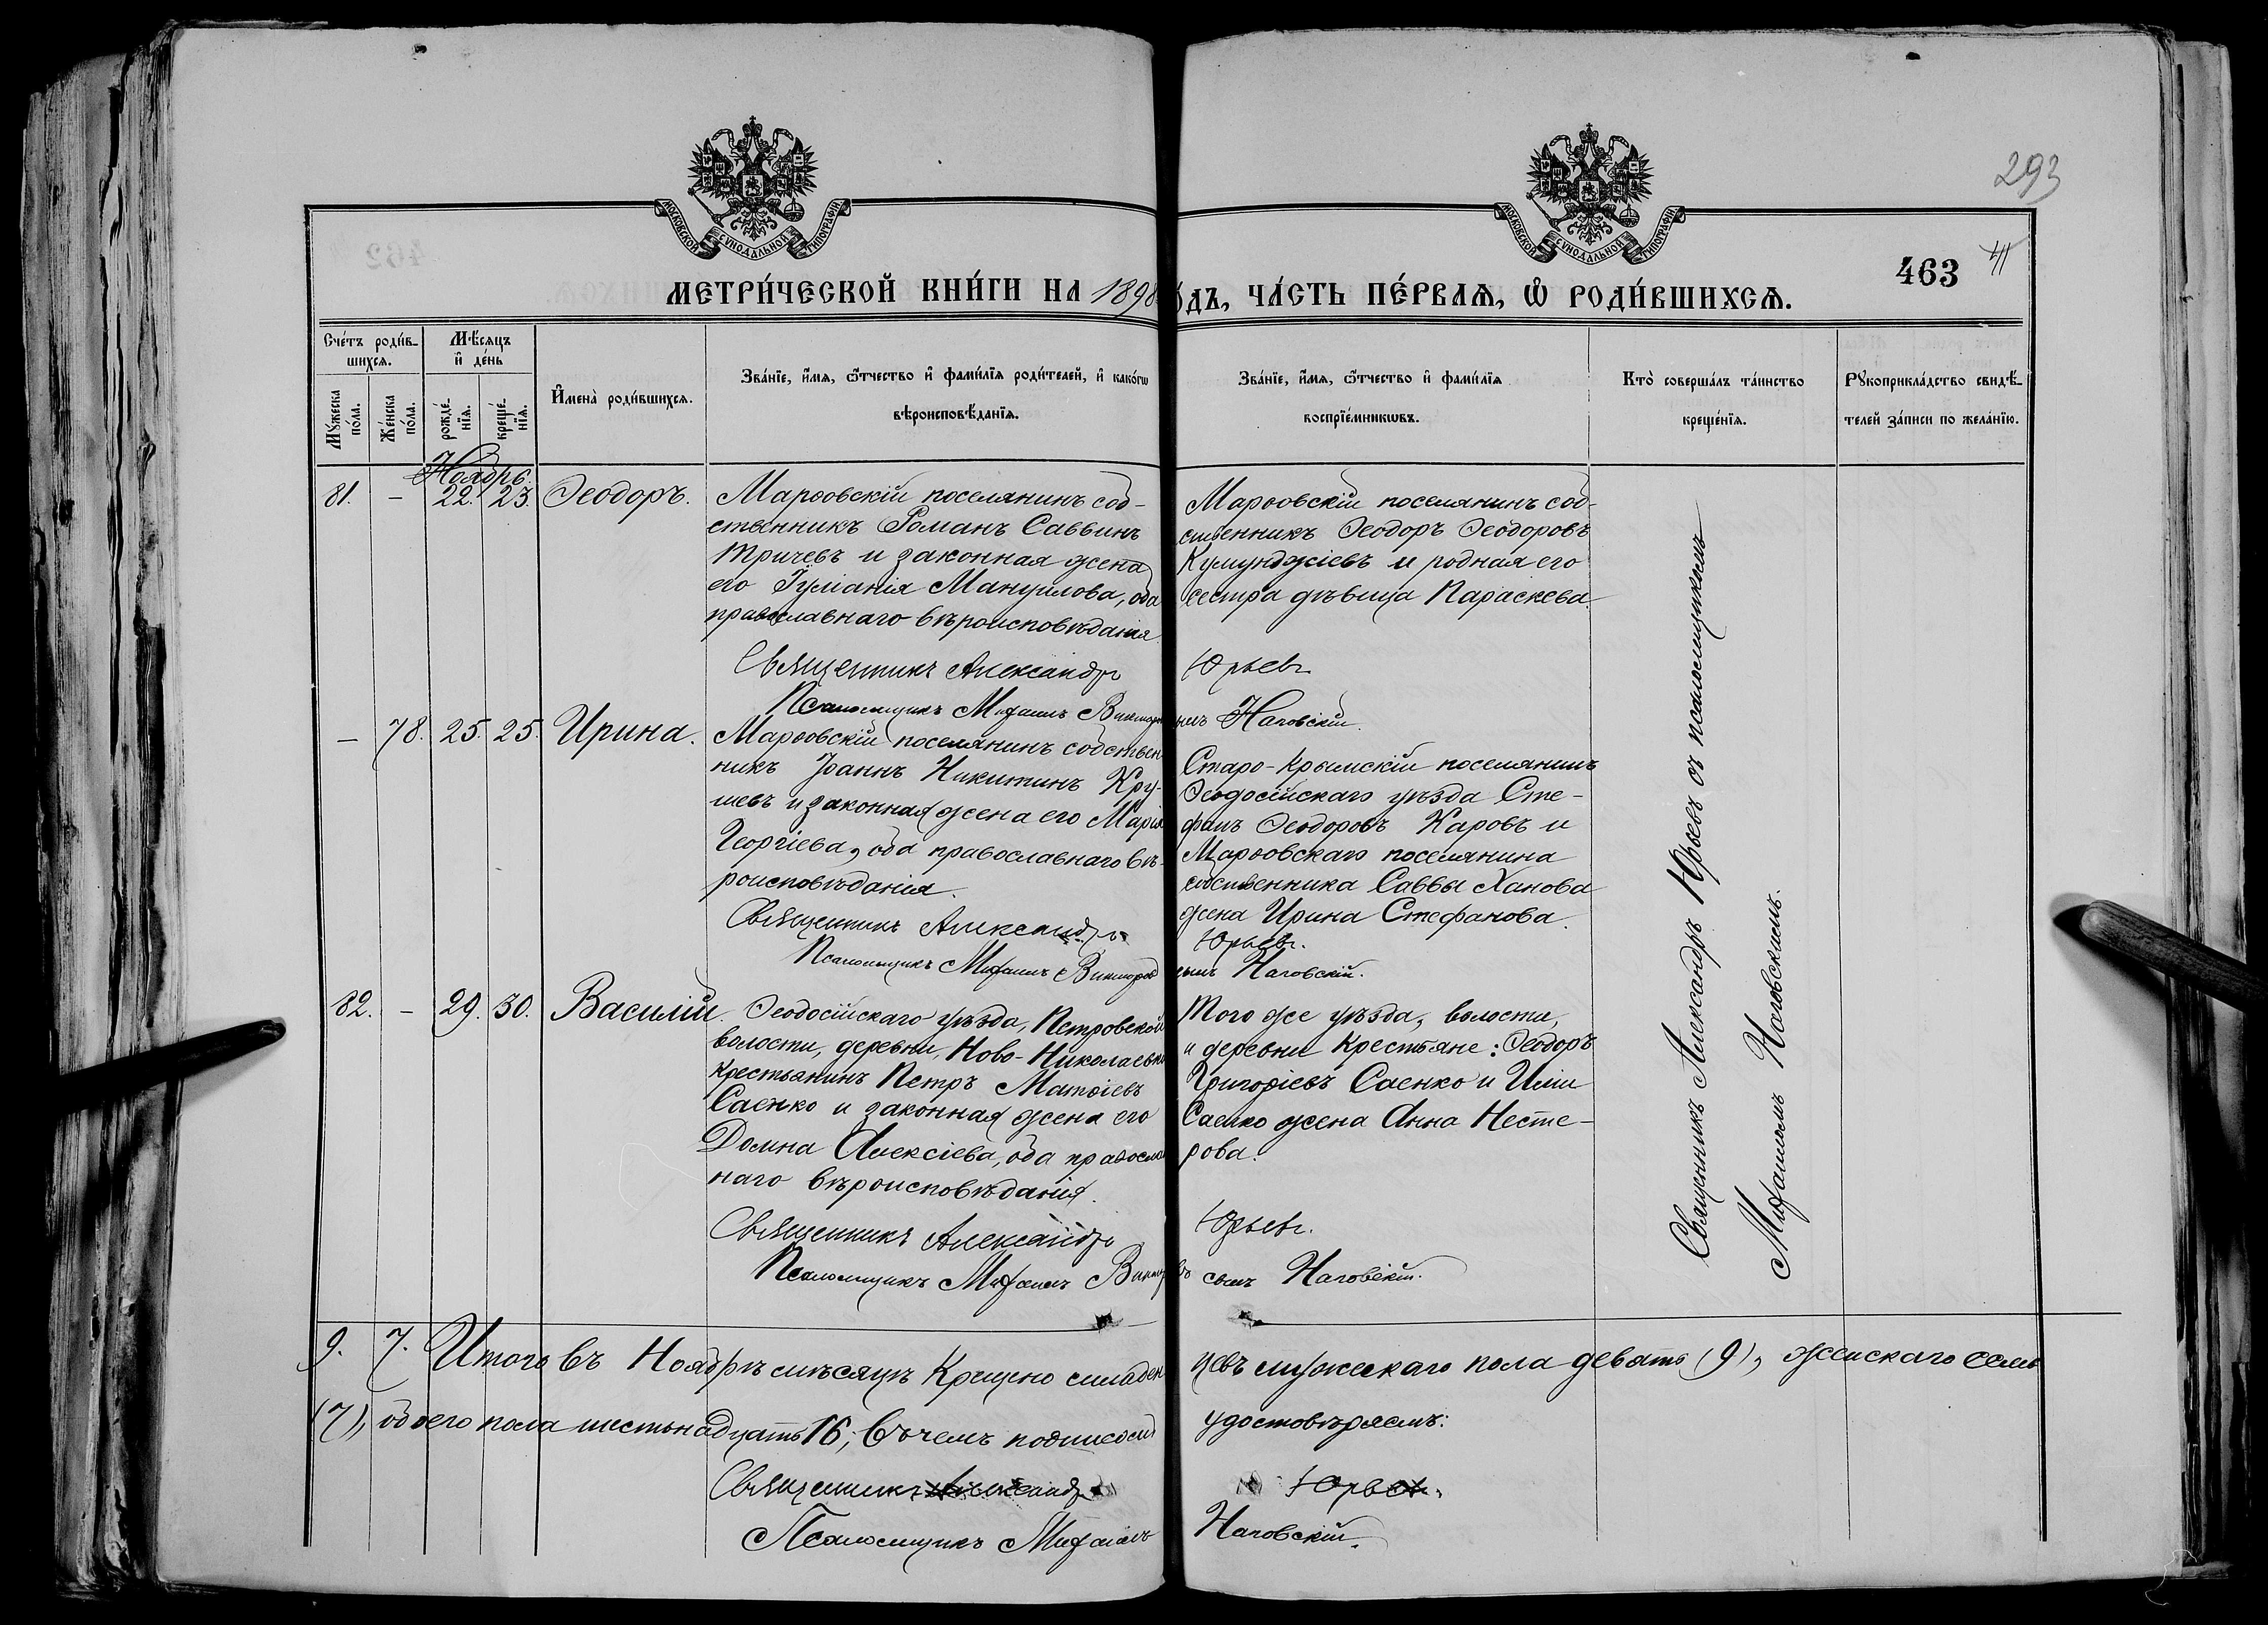 293
МОСКОВСКОЙ СѴНОДАЛЬНОЙ ТИПОГРАФІИ
МОСКОВСКОЙ СѴНОДАЛЬНОЙ ТИПОГРАФІИ
463
МЕТРИ́ЧЕСКОЙ КНИ́ГИ НА 1898 ГО́ДЪ, ЧА́СТЬ ПЕ́РВАѦ, Ѡ҆ РОДИ́ВШИХСѦ.
Сче́тъ роди́в-
шихсѧ.
Мѣ́сѧцъ
и҆ де́нь
Мꙋ́жеска
по́ла.
Же́нска
по́ла.
рожде́-
нїѧ.
креще́-
нїѧ.
И҆мена̀ роди́вшихсѧ.
Зва́нїе, и҆́мѧ, ѻ҆́тчество и҆ фами́лїѧ роди́телей, и҆ како́гѡ
вѣроисповѣ́данїѧ.
Зва́нїе, и҆́мѧ, ѻ҆́тчество и҆ фами́лїѧ
воспрїе́мникѡвъ.
Кто̀ соверша́лъ та́инство
креще́нїѧ.
Рꙋкоприкла́дство свидѣ́-
телей за́писи по жела́нїю.
Ноябрь.
81. – 22. 23. Ѳеодоръ.
Марѳовскій поселянинъ соб-
ственникъ Романъ Саввинъ
Тричевъ и законная жена
его Іуліанія Мануилова, оба
православнаго вѣроисповѣданія.
Марѳовскій поселянинъ соб-
ственникъ Ѳеодоръ Ѳеодоровъ
Кумунджіевъ и родная его
сестра дѣвица Параскева.
Священникъ Александръ Юрьевъ
Псаломщикъ Михаилъ Викторовымъ Наговскій.
– 78. 25. 25. Ирина.
Марѳовскій поселянинъ собствен-
никъ Іоаннъ Никитинъ Кру-
шевъ и законная жена его Марія
Георгіева, оба православнаго вѣ-
роисповѣданія.
Старо-Крымскій поселянинъ
Ѳеодосійскаго уѣзда Сте-
фанъ Ѳеодоровъ Каровъ и
Марѳовскаго поселянина
собственника Саввы Ханова
жена Ирина Стефанова.
Священникъ Александръ Юрьевъ.
Псаломщикъ Михаилъ Викторов Наговскій.
82. – 29. 30. Василій.
Ѳеодосійскаго уѣзда, Петровской
волости, деревни, Ново-Николаевки
крестьянинъ Петръ Матѳіевъ
Саенко и законная жена его
Домна Алексіева, оба православ
наго вѣроисповѣданія.
Того же уѣзда, волости,
и деревни крестьяне: Ѳеодоръ
Григоріевъ Саенко и Иліи
Саенко жена Анна Несте-
рова.
Священникъ Александръ Юрьевъ.
Псаломщикъ Михаилъ Викторовъ сынъ Наговскій.
Священникъ Александръ Юрьевъ съ псаломщикомъ
Михаиломъ Наговскимъ.
9. 7. Итого въ Ноябрѣ мѣсяцѣ крещено младенцевъ мужескаго пола девять (9), женскаго семь
(7), обоего пола шестьнадцать 16; въ чемъ подписомъ удостовѣряемъ:
Священникъ Александръ Юрьевъ.
Псаломщикъ Михаилъ Наговскій.